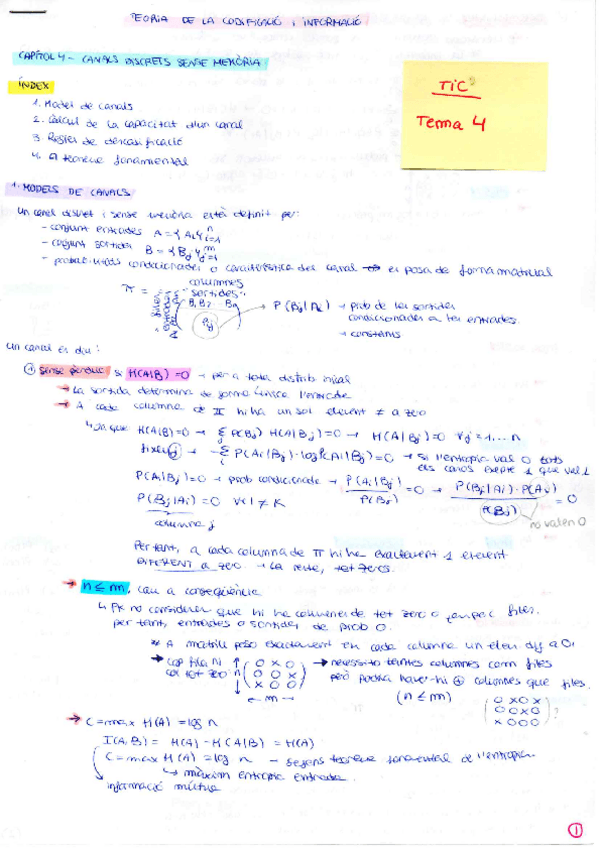 TEORIA DE LA CODIFICACIÓ i INFORMACIÓ
CAPÍTOL 4 - CANALS DISCRETS SENSE MEMÒRIA
TIC
Tema 4
ÍNDEX
1. Model de canals
2. Càlcul de la capacitat d'un canal
3. Regles de descodificació
4. teorema fonamental
1. MODELS DE CANALS
Un canal discret i sense memòria està definit per:
- conjunt entrades A = {Ai}ⁿi=1
- conjunt sortides B = {Bj}ᵐj=1
- probabilitats condicionades o característica del canal → es posa de forma matricial
columnes
"sortides"
π =
files
entrades
Pij
P(Bj|Ai) → prob de les sortides
condicionades a les entrades.
→ constants
Un canal es diu:
① Sense pèrdua si H(A|B)=0 → per a tota distrib inicial
→ La sortida determina de forma única l'entrada
→ A cada columna de π hi ha un sol element ≠ a zero
↳ Ja que H(A|B)=0 → Σj P(Bj) H(A|Bj)=0 → H(A|Bj)=0 ∀j=1...n
fixem j → -Σ P(Ai|Bj)·log P(Ai|Bj)=0 → si l'entropia val 0 tots
els casos excepte 1 que val 1
P(Ai|Bj)=0 → prob condicionada → P(Ai|Bj)/P(Bj) =0 → P(Bj|Ai)·P(Ai)/P(Bj) =0
P(Bj|Ai)=0 ∀i≠k
no valen 0
columna j
Per tant, a cada columna de π hi ha exactament 1 element
DIFERENT a zero. → La resta, tot zeros.
→ n ≤ m, com a conseqüència
↳ Pk no considerem que hi ha columnes de tot zero o tampoc files.
per tant, entrades o sortides de prob 0.
* A matriu poso exactament en cada columna un elem. dif a 0.
→ cap fila ni
col tot zero
n
(0 x 0
0 0 x
x 0 0)
← m →
→ necessito tantes columnes com files
però podria haver-hi ⊕ columnes que files.
(n ≤ m)
(0 x 0 x
0 0 x 0
x 0 0 0)?
→ C = max H(A) = log n
I(A,B) = H(A) - H(A|B) = H(A)
C = max H(A) = log n → Segons teorema fonamental de l'entropia
↳ màxim entropia entrada
informació mútua
1